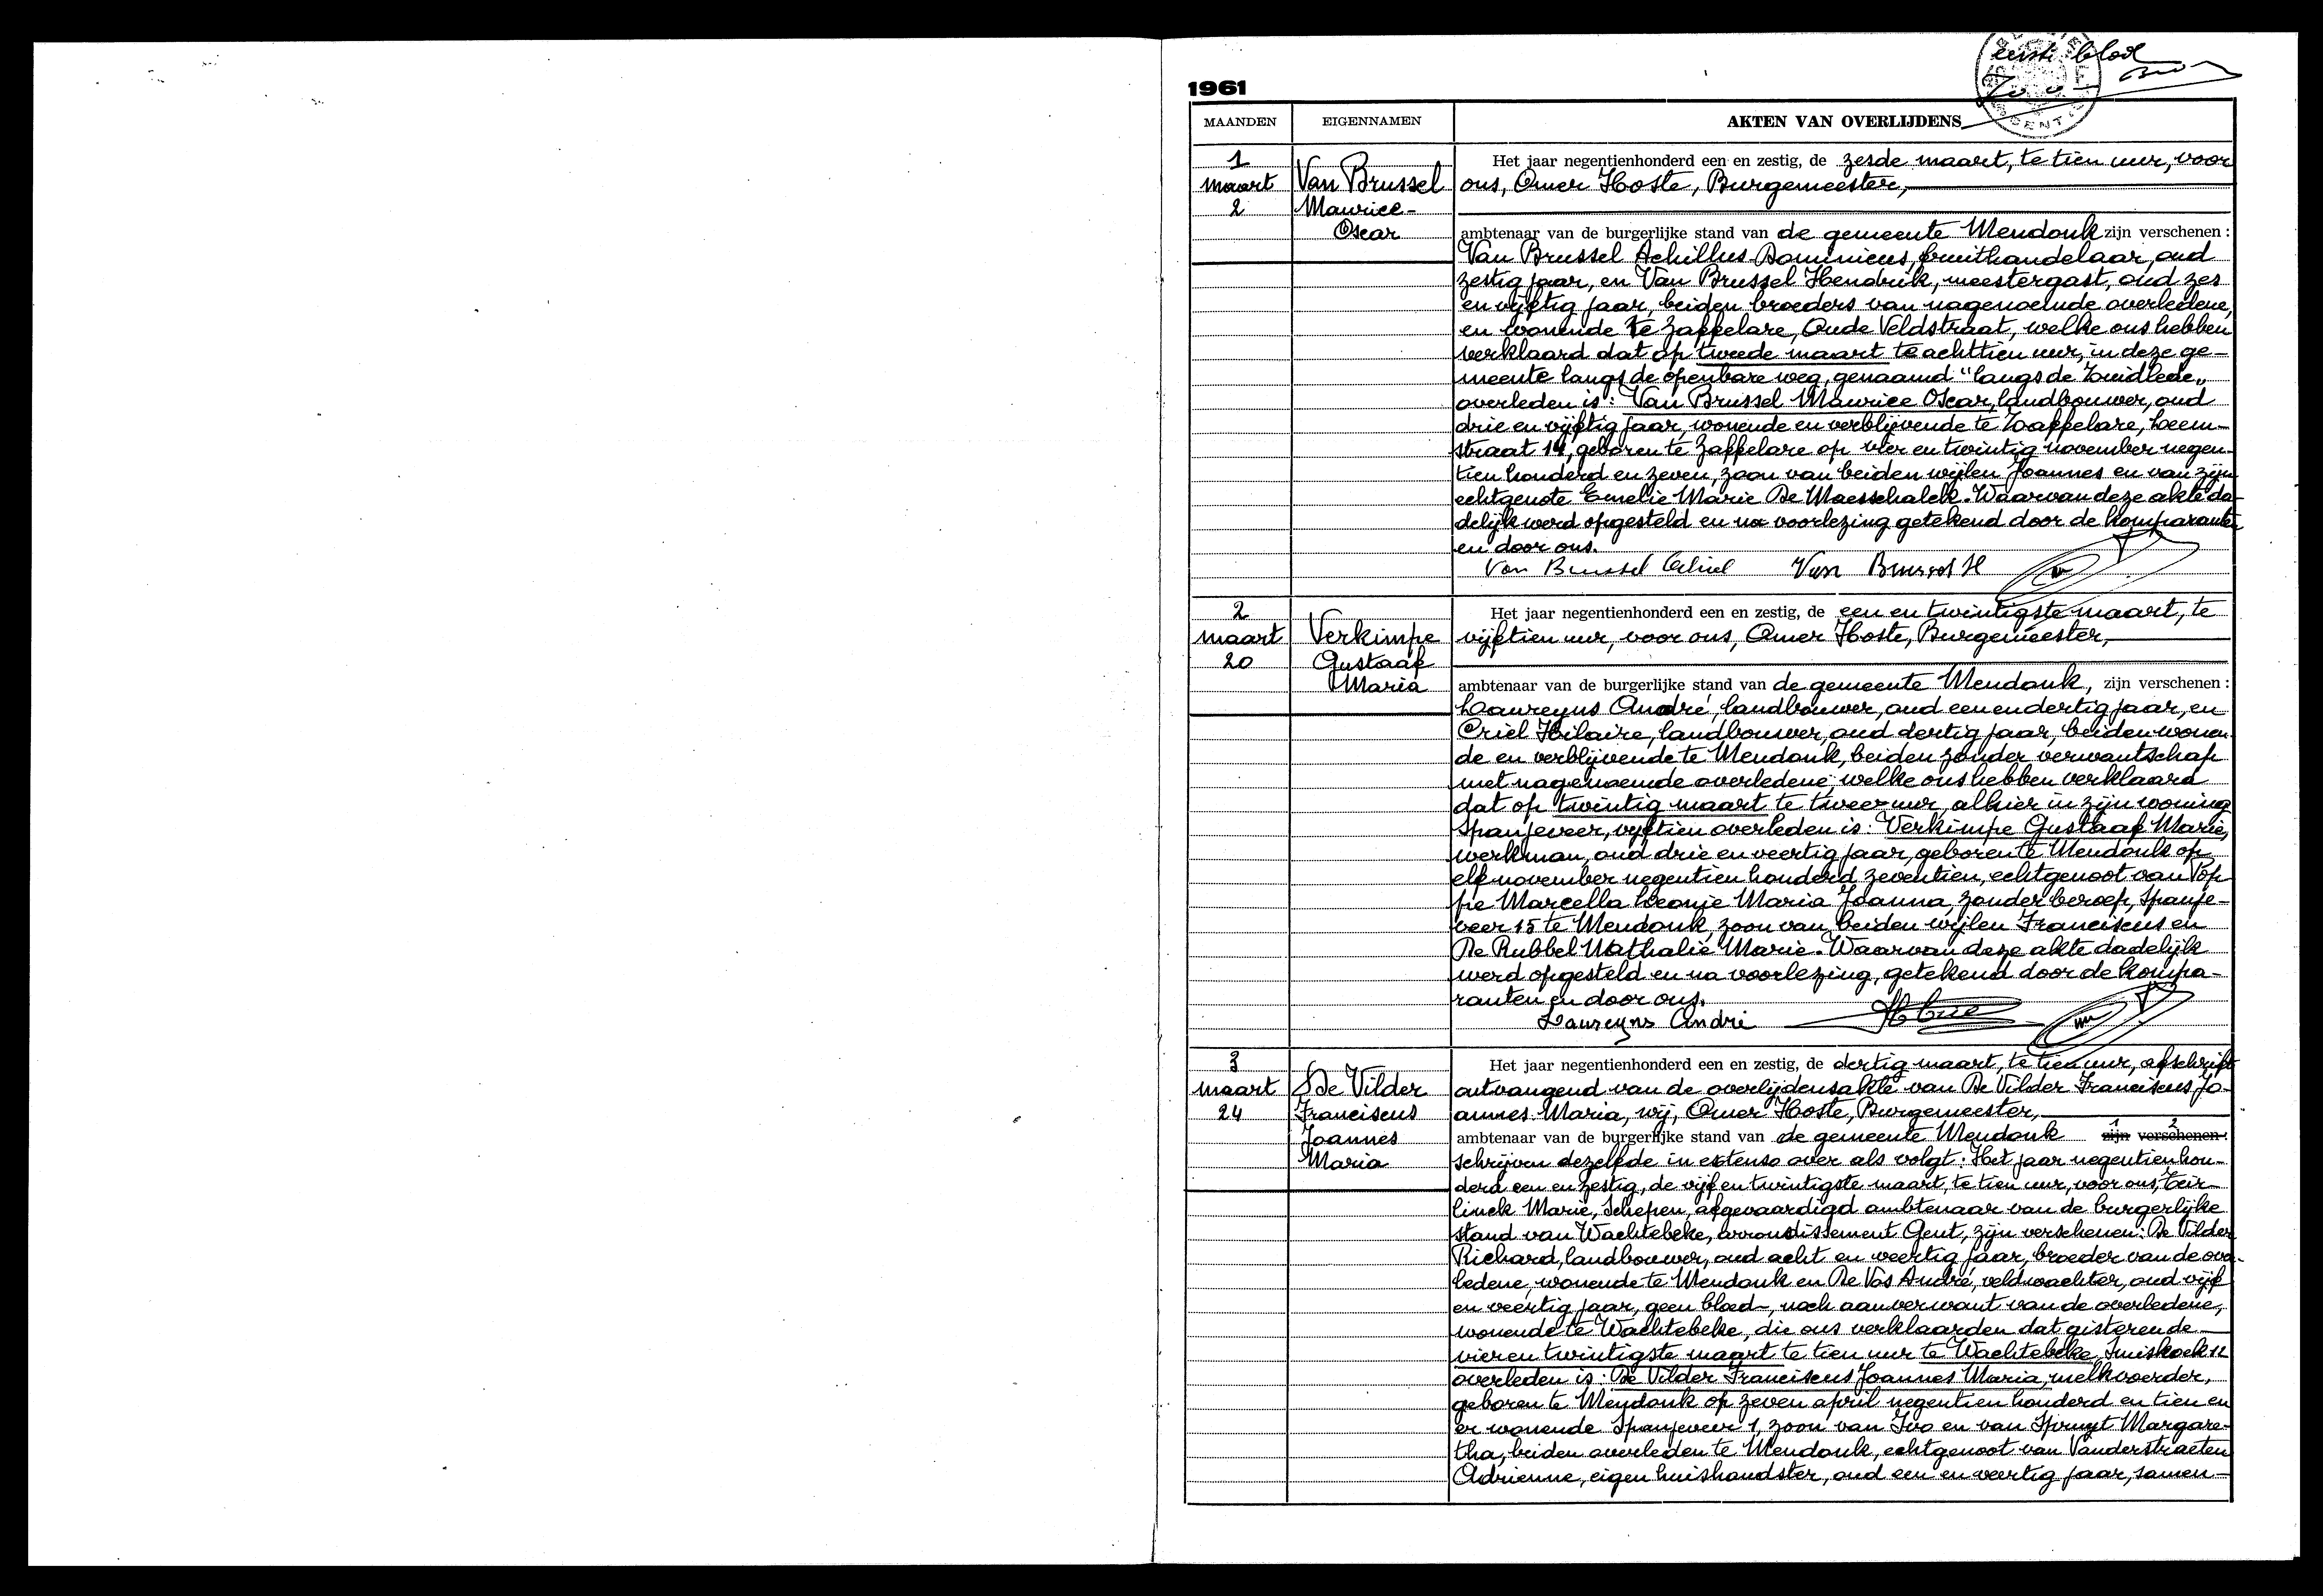 eerste blad
1961
MAANDEN EIGENNAMEN AKTEN VAN OVERLIJDENS
GENT
1
maart
2
Van Brussel
Maurice-
Oscar
Het jaar negentienhonderd een en zestig, de zesde maart, te tien uur, voor
ons, Omer Hoste, Burgemeester,
ambtenaar van de burgerlijke stand van de gemeente Mendonk zijn verschenen :
Van Brussel Achillus Dominicus, fruithandelaar, oud
zestig jaar, en Van Brussel Hendrik, meestergast, oud zes
en vijftig jaar, beiden broeders van nagenoemde overledene,
en wonende te Zaffelare, Oude Veldstraat, welke ons hebben
verklaard dat op tweede maart te achttien uur, in deze ge-
meente langs de openbare weg, genaamd "langs de Zuidlede"
overleden is : Van Brussel Maurice Oscar, landbouwer, oud
drie en vijftig jaar, wonende en verblijvende te Zaffelare, Leem-
straat 14, geboren te Zaffelare op vier en twintig november negen-
tien honderd en zeven, zoon van beiden wijlen Joannes en van zijn
echtgenote Emelie Marie De Maesschalck. Waarvan deze akte da-
delijk werd opgesteld en na voorlezing getekend door de komparanten
en door ons.
Van Brussel Achiel Van Brussel H
2
maart
20
Verkimpe
Gustaaf
Maria
Het jaar negentienhonderd een en zestig, de een en twintigste maart, te
vijftien uur, voor ons, Omer Hoste, Burgemeester,
ambtenaar van de burgerlijke stand van de gemeente Mendonk, zijn verschenen :
Laureyns André, landbouwer, oud een en dertig jaar, en
Criel Hilaire, landbouwer, oud dertig jaar, beiden wonen-
de en verblijvende te Mendonk, beiden zonder verwantschap
met nagenoemde overledene, welke ons hebben verklaard
dat op twintig maart te twee uur, alhier in zijn woning
Spanjeveer, vijftien overleden is : Verkimpe Gustaaf Marie,
werkman, oud drie en veertig jaar, geboren te Mendonk op
elf november negentien honderd zeventien, echtgenoot van Pop-
pe Marcella Leonie Maria Joanna, zonder beroep, Spanje-
veer 15 te Mendonk, zoon van beiden wijlen Franciscus en
De Rubbel Nathalie Marie. Waarvan deze akte dadelijk
werd opgesteld en na voorlezing, getekend door de kompa-
ranten en door ons.
Laureyns André
3
maart
24
De Vilder
Franciscus
Joannes
Maria
Het jaar negentienhonderd een en zestig, de dertig maart, te tien uur, afschrift
ontvangend van de overlijdensakte van De Vilder Franciscus Jo-
annes Maria, wij, Omer Hoste, Burgemeester,
ambtenaar van de burgerlijke stand van de gemeente Mendonk 1 zijn 2 verschenen :
schrijven dezelfde in extenso over als volgt : Het jaar negentien hon-
derd een en zestig, de vijf en twintigste maart, te tien uur, voor ons, Teir-
linck Marie, Schepen, afgevaardigd ambtenaar van de burgerlijke
stand van Wachtebeke, arrondissement Gent, zijn verschenen : De Vilder
Richard, landbouwer, oud acht en veertig jaar, broeder van de over-
ledene, wonende te Mendonk en De Vos André, veldwachter, oud vijf
en veertig jaar, geen bloed-, noch aanverwant van de overledene,
wonende te Wachtebeke, die ons verklaarden dat gisteren de
vier en twintigste maart te tien uur te Wachtebeke, 11
overleden is : De Vilder Franciscus Joannes Maria, melkvoerder,
geboren te Mendonk op zeven april negentien honderd en tien en
er wonende Spanjeveer 1, zoon van Ivo en van Spruyt Margare-
tha, beiden overleden te Mendonk, echtgenoot van Vanderstraeten
Adrienne, eigen huishoudster, oud een en veertig jaar, samen-